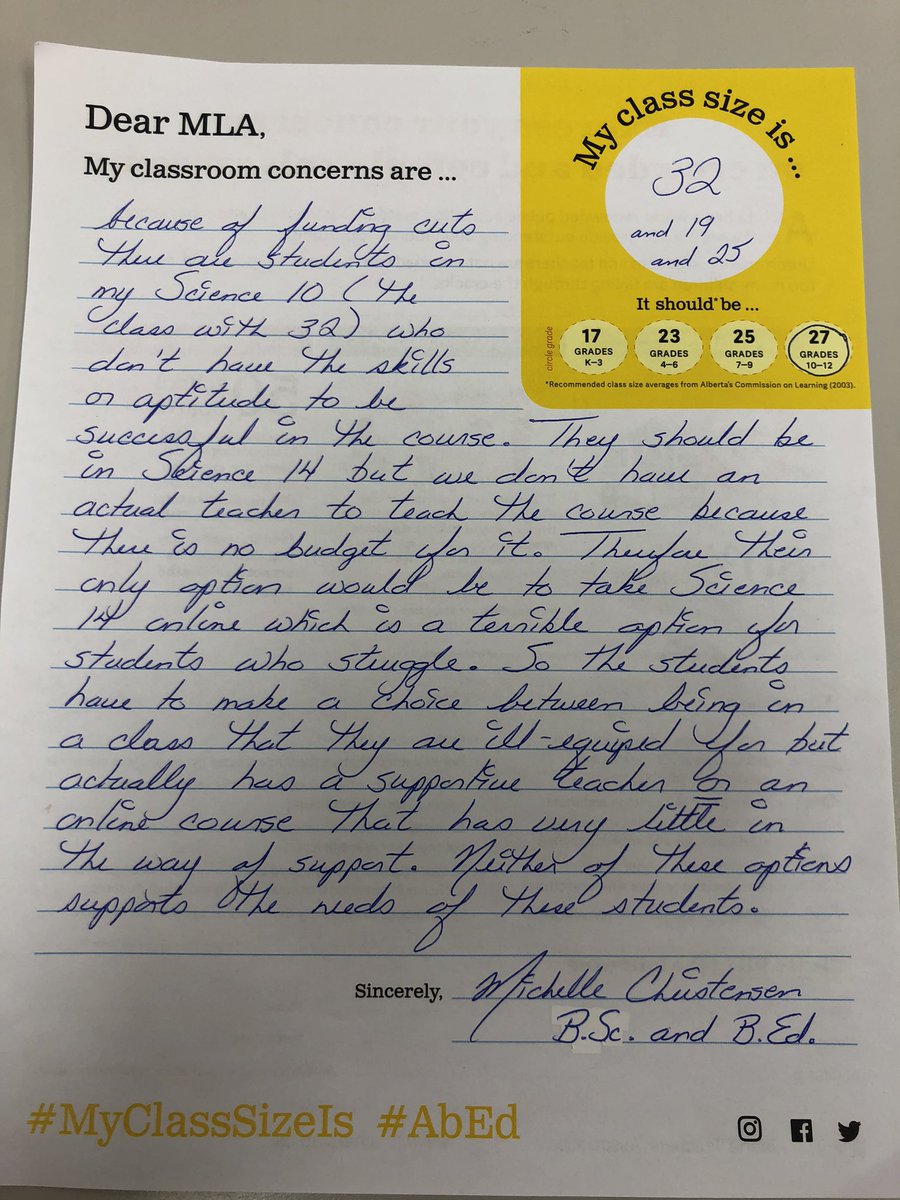 Dear MLA,
My classroom concerns are ...
because of funding cuts
there are students in
my Science 10 (the
class with 32) who
don't have the skills
or aptitude to be
successful in the course. They should be
in Science 14 but we don't have an
actual teacher to teach the course because
there is no budget for it. Therefore their
only option would be to take Science
14 online which is a terrible option for
students who struggle. So the students
have to make a choice between being in
a class that they are ill-equiped for but
actually has a supportive teacher or an
online course that has very little in
the way of support. Neither of these options
supports the needs of these students.
Sincerely, Michelle Christensen
B.Sc. and B.Ed.
My class size is ...
32
and 19
and 25
It should* be ...
circle grade
17 GRADES K–3
23 GRADES 4–6
25 GRADES 7–9
27 GRADES 10–12
*Recommended class size averages from Alberta's Commission on Learning (2003).
#MyClassSizeIs #AbEd